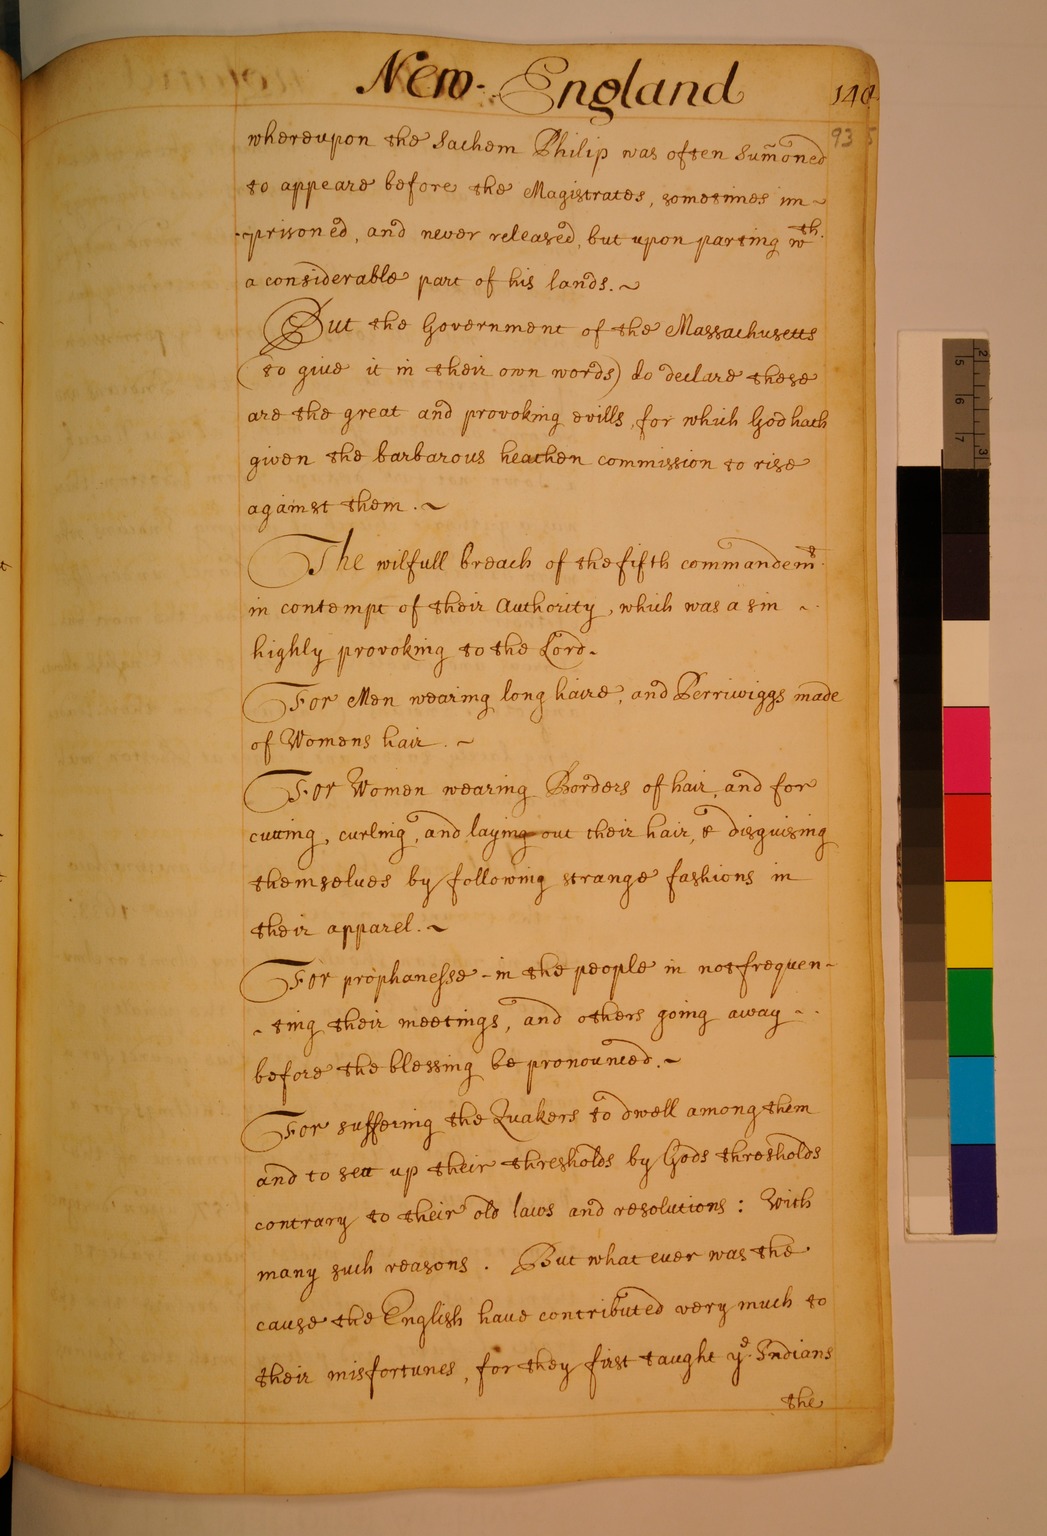 New-England
140
93 5
whereupon the Sachem Philip was often Sum̄oned
to appeare before the Magistrates, sometimes im~
-prisoned, and never released, but upon parting wth.
a considerable part of his lands.~
But the Government of the Massachusetts
(to give it in their own words) do declare these
are the great and provoking evills, for which God hath
given the barbarous heathen commission to rise
against them.~
The wilfull breach of the fifth commandemt.
in contempt of their Authority, which was a sin ~
highly provoking to the Lord.
For Men wearing long haire, and Perriwiggs made
of Womens hair.~
For Women wearing Borders of hair, and for
cutting, curling, and laying out their hair, & disguising
themselves by following strange fashions in
their apparel.~
For prophanesse - in the people in not frequen~
~ting their meetings, and others going away ~
before the blessing be pronounced.~
For suffering the Quakers to dwell among them
and to sett up their thresholds by Gods thresholds
contrary to their old laws and resolutions: With
many such reasons. But what ever was the
cause the English have contributed very much to
their misfortunes, for they first taught ye Indians
the